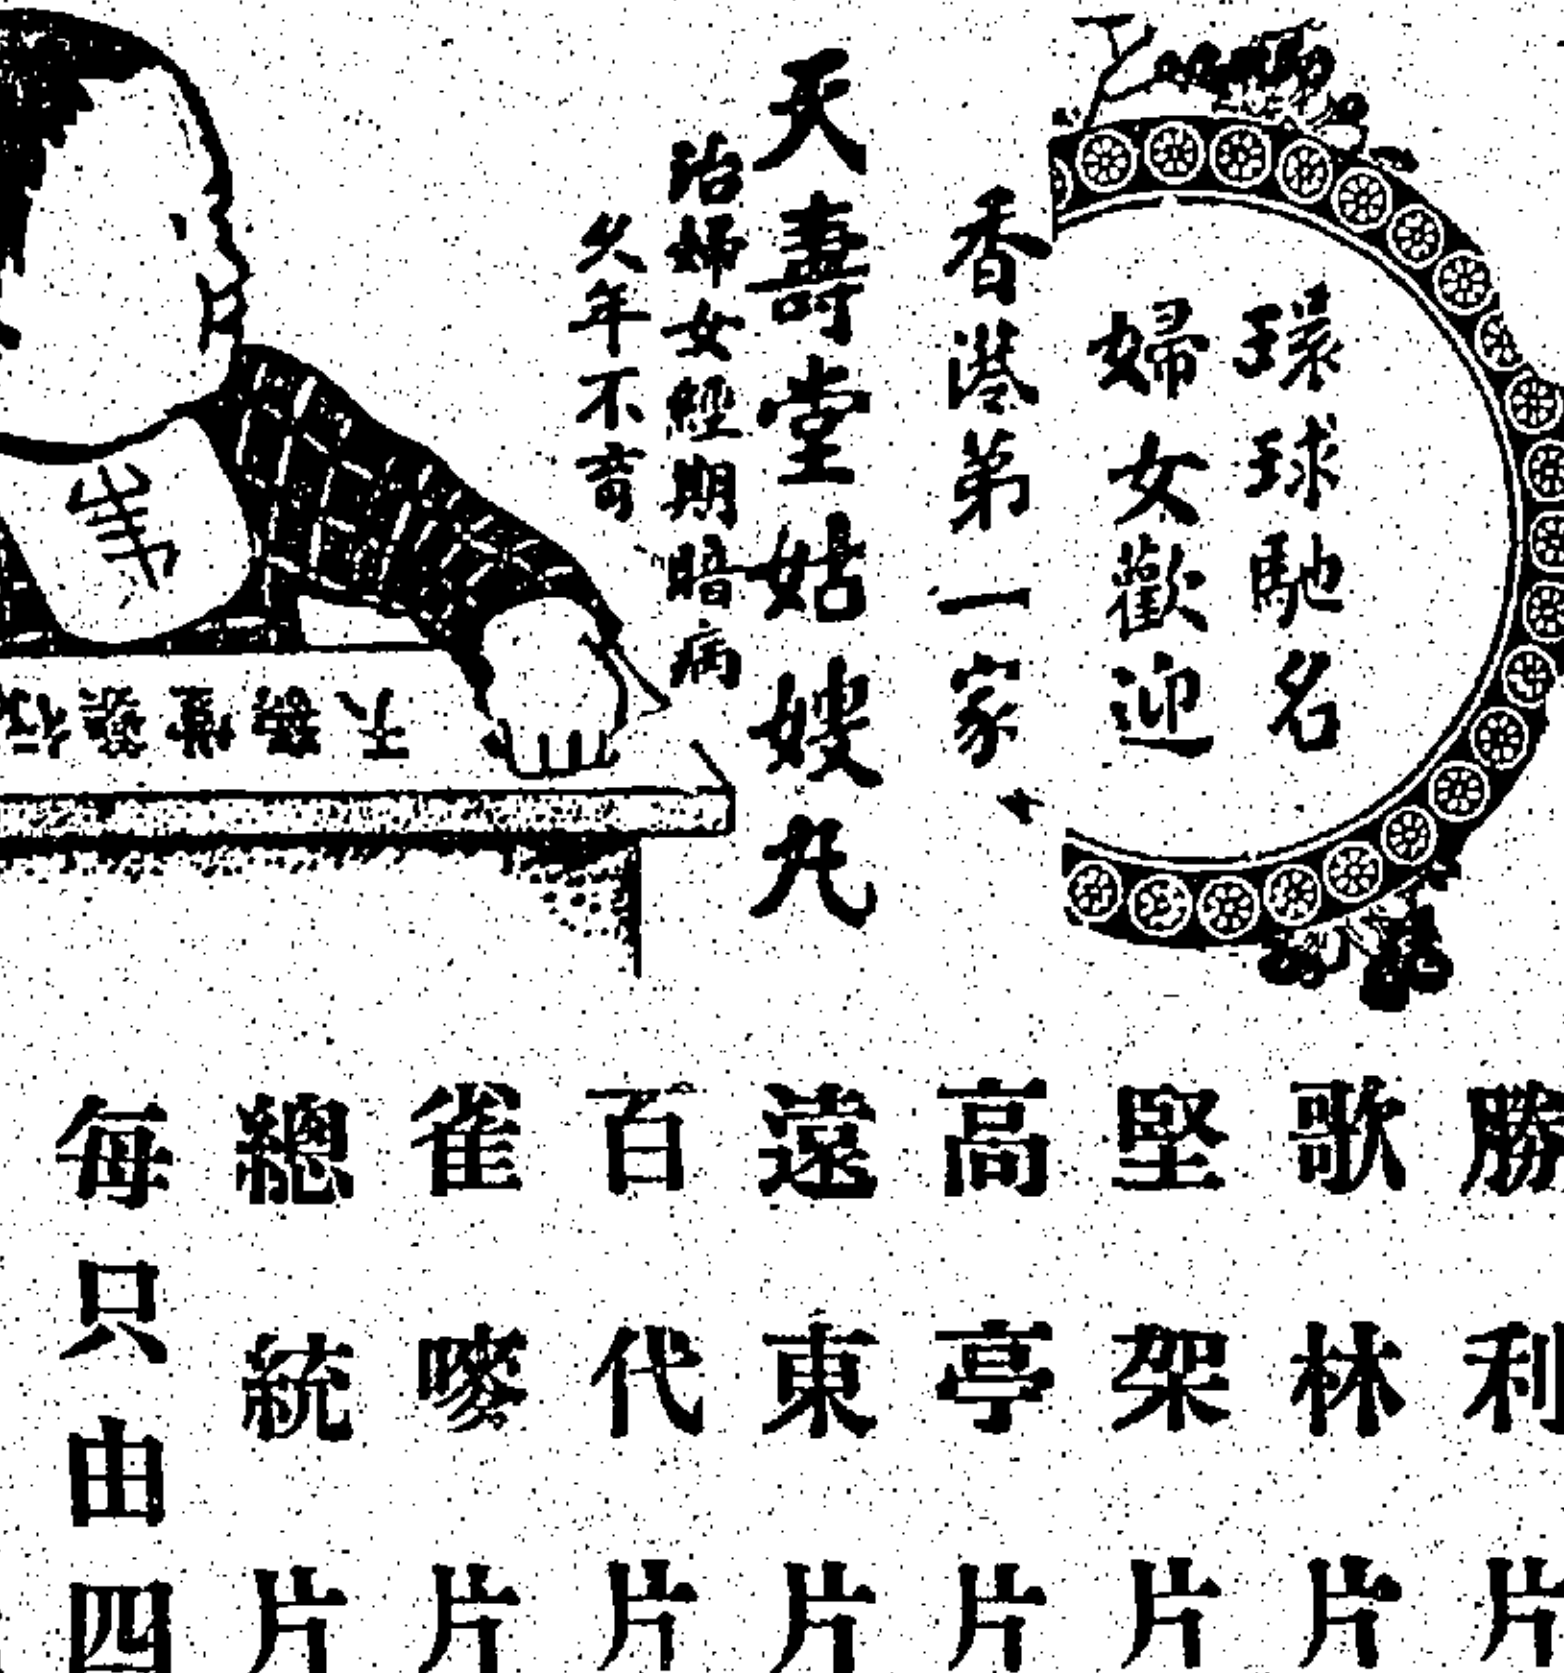 環球馳名
婦女歡迎
香港第一家
天壽堂姑嫂丸
治婦女經期暗病
久年不育
勝利片
歌林片
堅架片
高亭片
遠東片
百代片
雀嘜片
總統片
每只由四